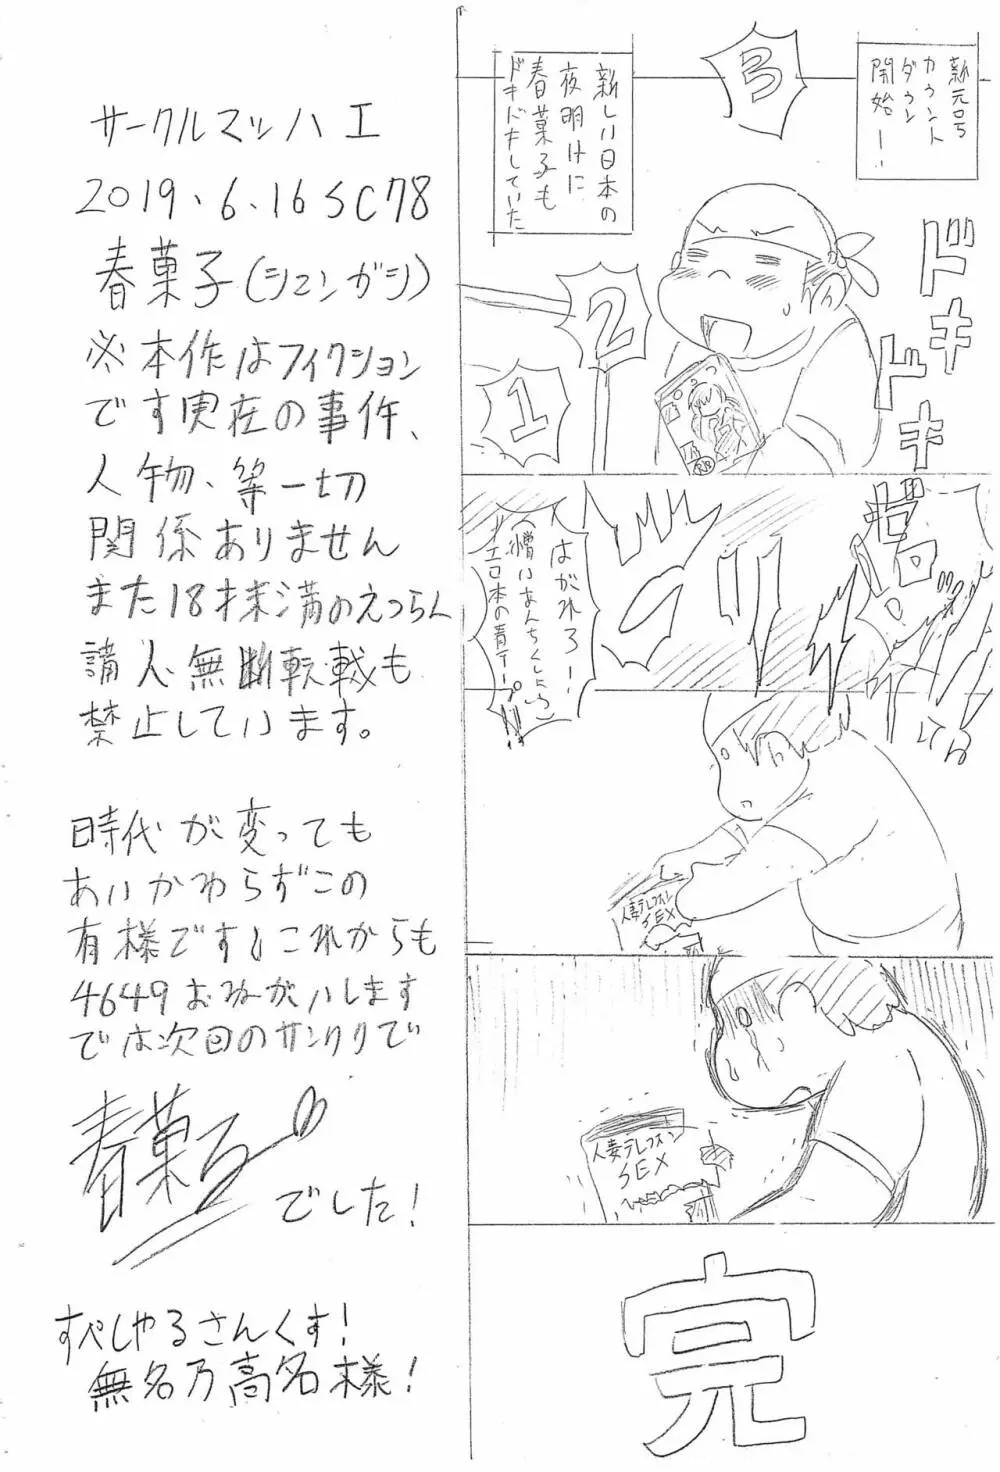 新元号
カウント
ダウン
開始ー!
3
新しい日本の
夜明けに
春菓子も
ドキドキしていた
ドキ
ドキ
2
1
はがれろー!
エロ本の青テープ!!
人妻テレフォン
SEX
人妻テレフォン
SEX
完
サークルマッハエ
2019.6.16SC78
春菓子(シュンガシ)
※本作はフィクション
です実在の事件、
人物、等一切
関係ありません
また18才未満のえつらん
請人・無断転載も
禁止しています。
時代が変っても
あいかわらずこの
有様です!これからも
4649おねがいします
では次回のサンクリで
春菓子
でした!
すぺしゃるさんくす!
無名乃高名様!